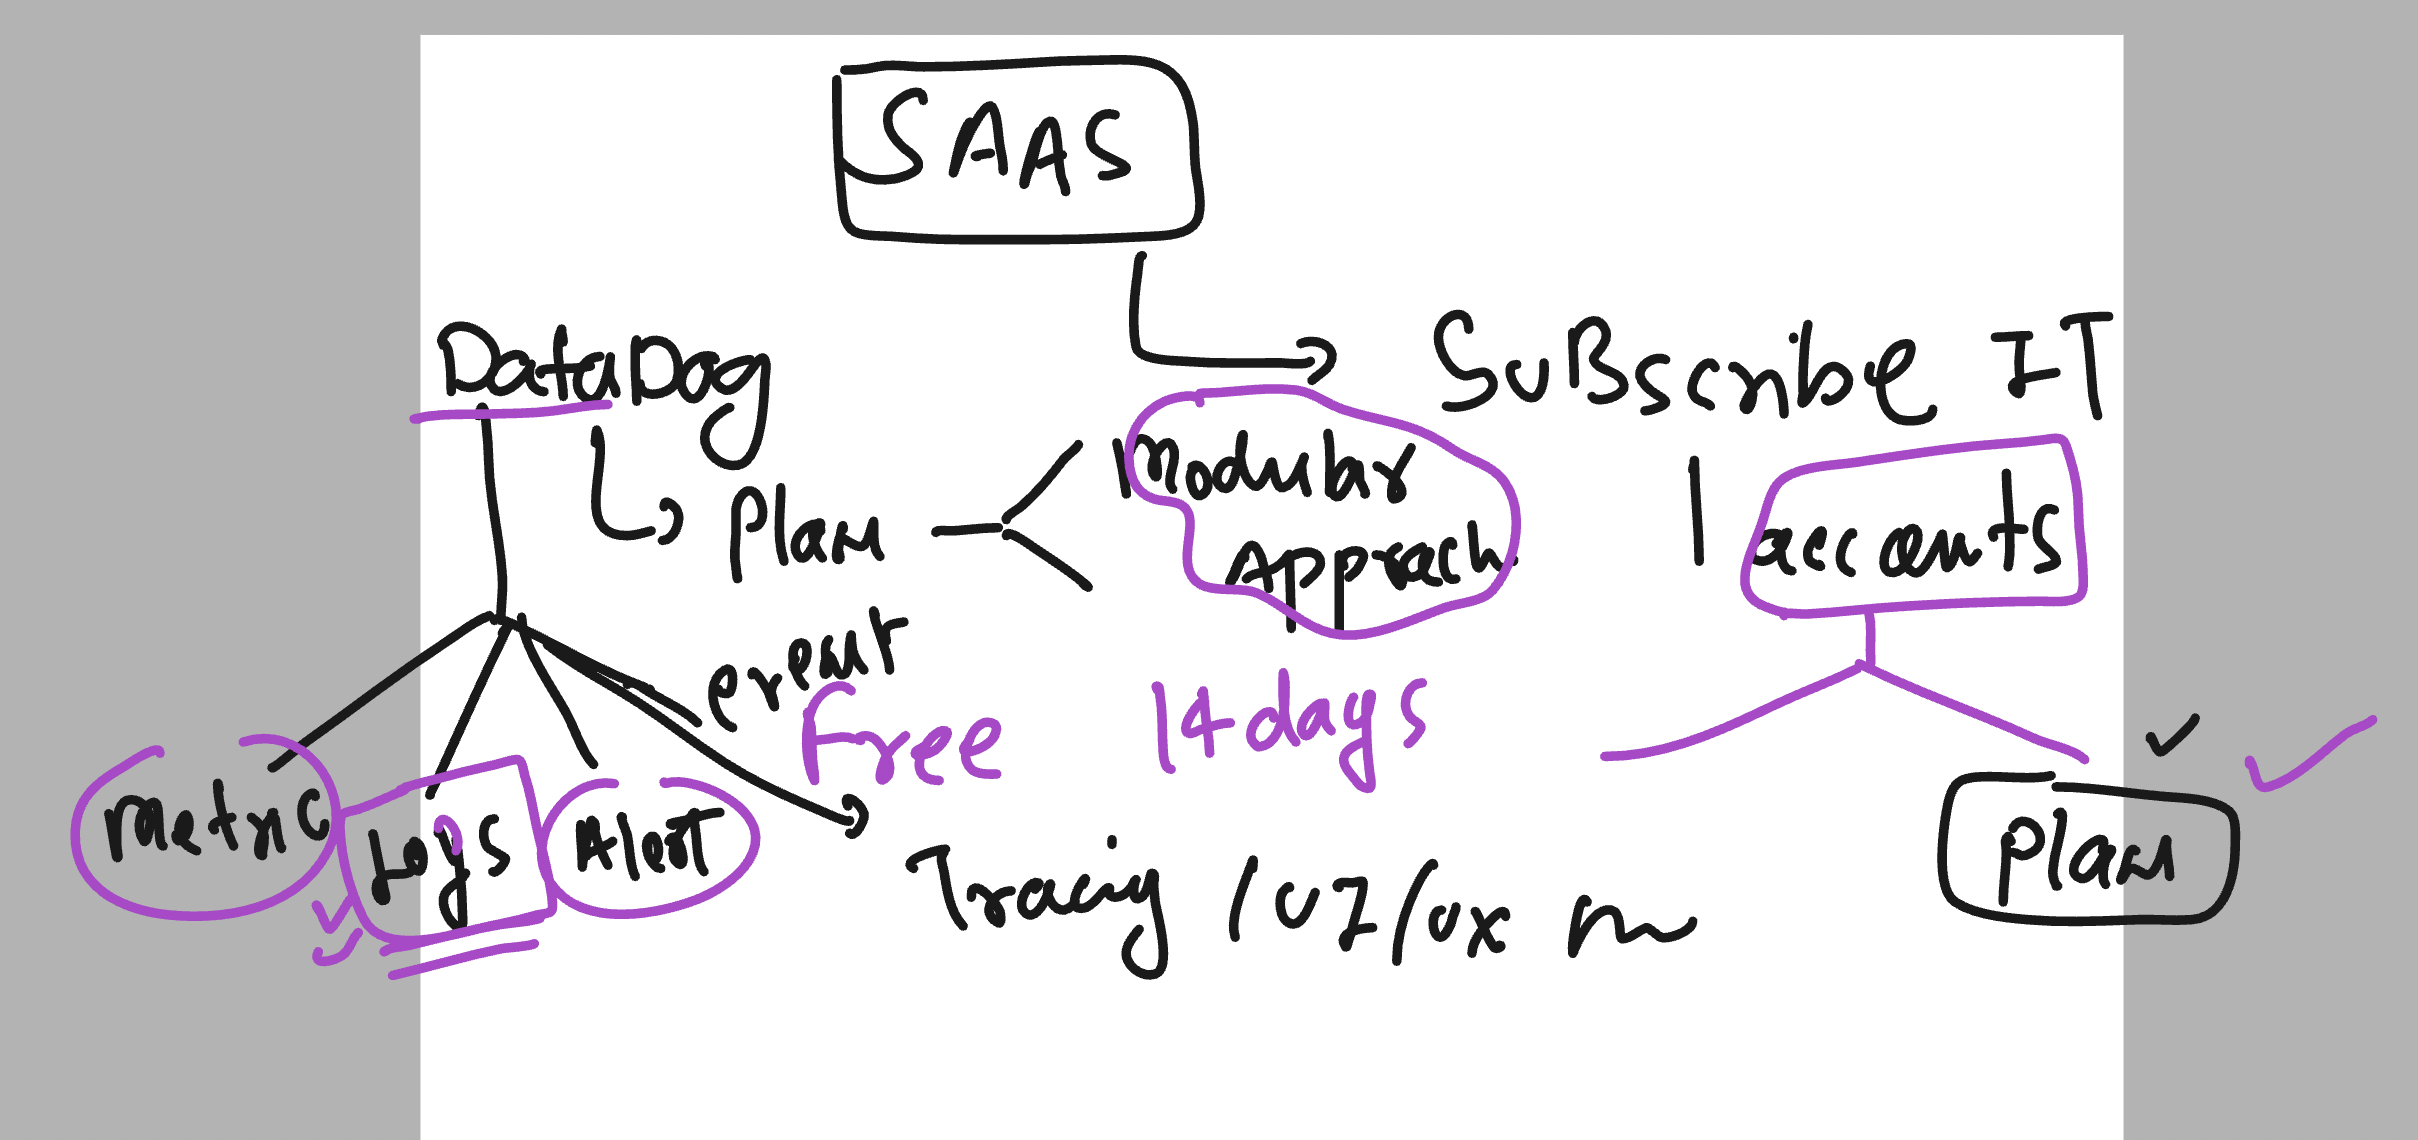 SAAS
SuBscribe IT
DataDog
Plan
Modular
Approach
accounts
event
Free 14days
Metric
Logs
Alert
Tracing / UI/UX
Plan